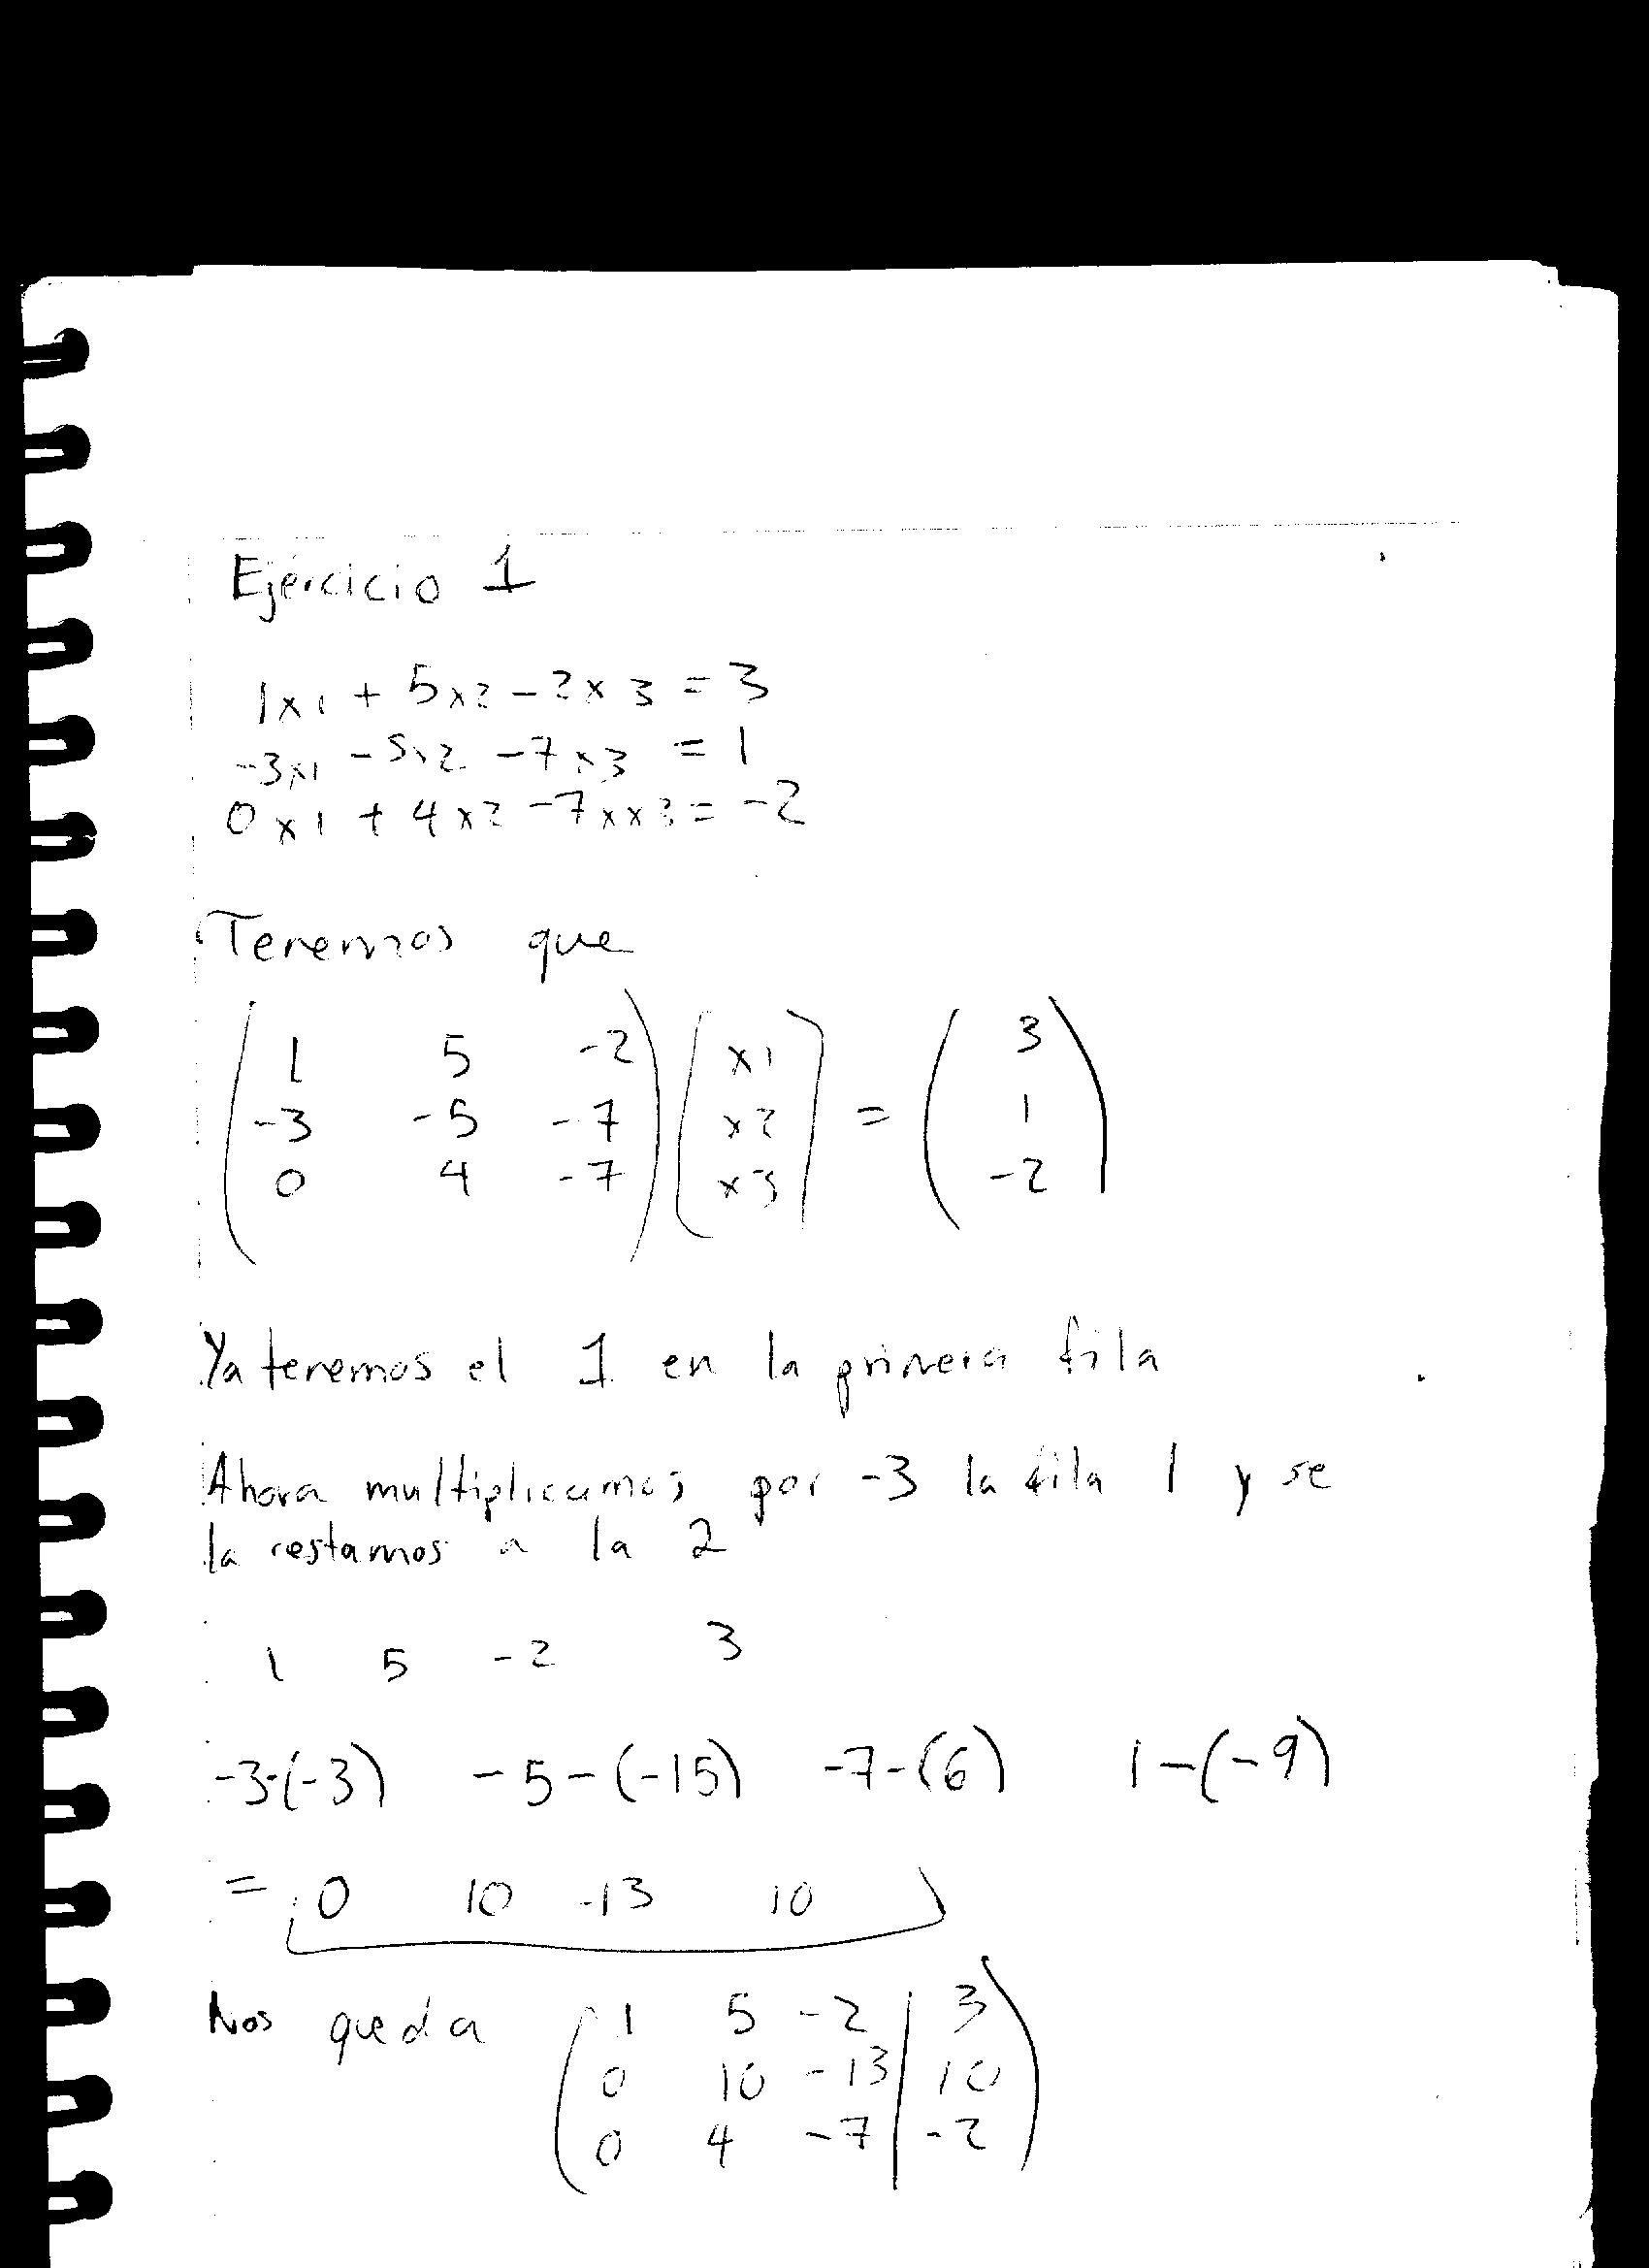 Ejercicio 1
1x1 + 5x2 - 2x3 = 3
-3x1 - 5x2 - 7x3 = 1
0x1 + 4x2 - 7xx3 = -2
Tenemos que
( 1 5 -2 ) [ x1 ] = ( 3 )
( -3 -5 -7 ) [ x2 ] = ( 1 )
( 0 4 -7 ) [ x3 ] = ( -2 )
Ya tenemos el 1 en la primera fila
Ahora multiplicamos por -3 la fila 1 y se
la restamos a la 2
1 5 -2 3
-3-(-3) -5-(-15) -7-(6) 1-(-9)
= 0 10 -13 10
Nos queda ( 1 5 -2 | 3 )
( 0 10 -13 | 10 )
( 0 4 -7 | -2 )